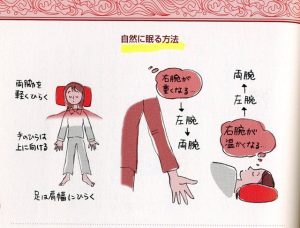 自然に眠る方法
両脇を
軽くひらく
手のひらは
上に向ける
足は肩幅にひらく
右腕が
重くなる…
↓
左腕
↓
両腕
両腕
↑
左腕
↑
右腕が
温かくなる…